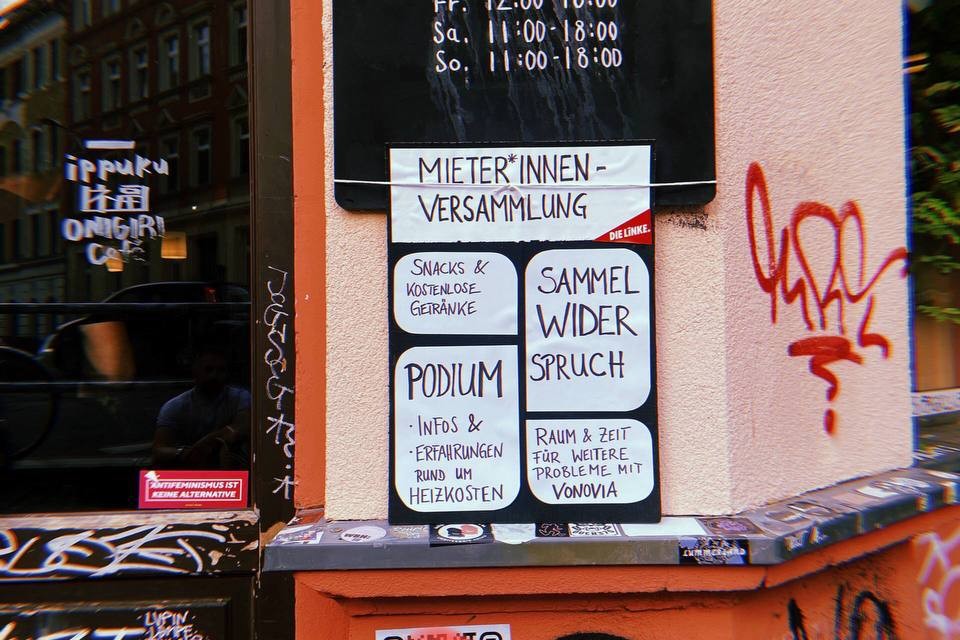 Fr. 12:00-18:00
Sa. 11:00-18:00
So. 11:00-18:00
MIETER*INNEN-
VERSAMMLUNG
DIE LINKE.
SNACKS &
KOSTENLOSE
GETRÄNKE
PODIUM
· INFOS &
· ERFAHRUNGEN
RUND UM
HEIZKOSTEN
SAMMEL
WIDER
SPRUCH
RAUM & ZEIT
FÜR WEITERE
PROBLEME MIT
VONOVIA
ippuku
ONIGIRI
ANTIFEMINISMUS IST
KEINE ALTERNATIVE
LUMMERLAND
LUPIN